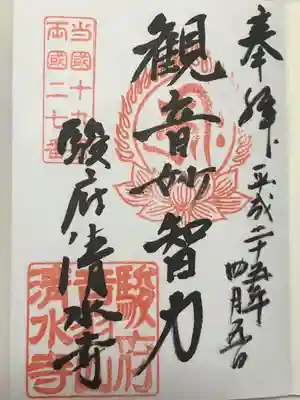 奉拝
平成二十五年
四月五日
観音妙智力
駿府清水寺
当國十九
両國二七番
駿府
音羽山
清水寺